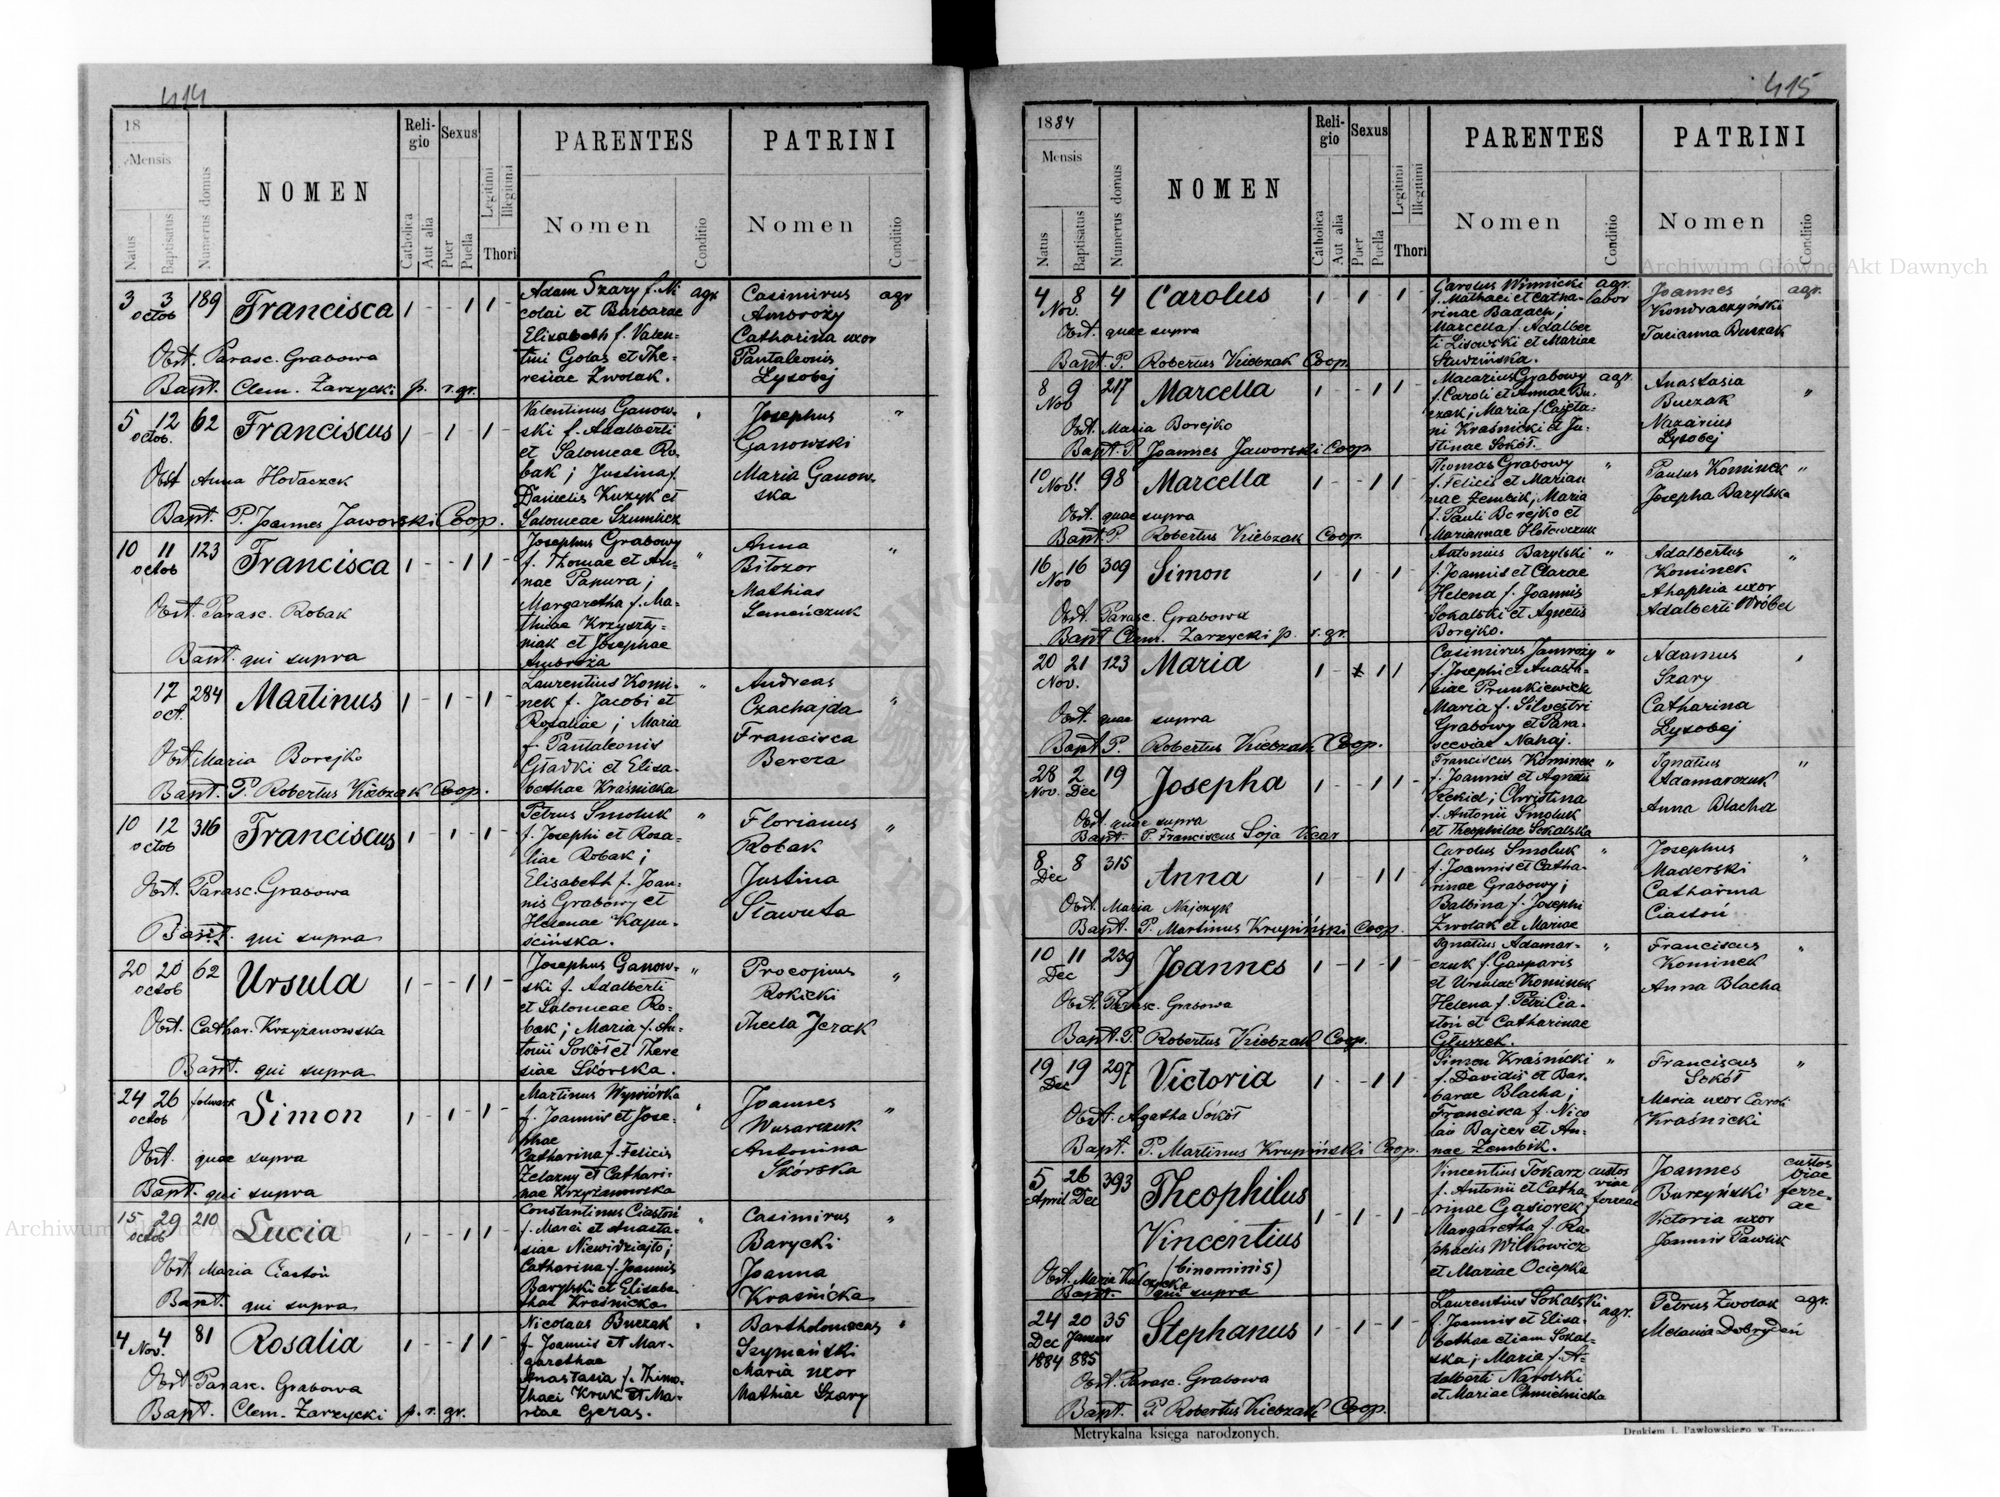 414
18
Mensis
Natus
Baptisatus
Numerus domus
NOMEN
Religio
Catholica
Aut alia
Sexus
Puer
Puella
Legitimi
Illegitimi
Thori
PARENTES
Nomen
Conditio
PATRINI
Nomen
Conditio
3 3 189 Francisca
octob
Obst. Parasc. Grabowa
Bapt. Clem. Zarzycki p. r. gr.
Adam Szary f. Ni agr
colai et Barbarae
Elisabeth f. Valen-
tini Golas et The-
resiae Zwolak.
Casimirus agr
Ambroży
Catharina uxor
Pantaleonis
Łysobej
5 12 62 Franciscus
octob.
Obst Anna Hołaczek
Bapt. P. Joannes Jaworski Coop.
Valentinus Ganow-
ski f. Adalberti
et Salomeae Ro-
bak; Justina f.
Danielis Kuzyk et
Salomeae Szumlicz
Josephus "
Ganowski
Maria Ganow-
ska
10 11 123 Francisca
octob
Obst. Parasc. Robak
Bapt. qui supra
Josephus Grabowy "
f. Thomae et An-
nae Papura;
Margaretha f. Ma-
thiae Krzyszty-
niak et Josephae
Ambroża
Anna "
Biłozor
Mathias
Semeńczuk
12 284 Martinus
oct.
Obst Maria Borejko
Bapt. P. Robertus Kiebzak Coop.
Laurentius Komi- "
nek f. Jacobi et
Rosaliae; Maria
f. Pantaleonis
Gładki et Elisa-
bethae Kraśnicka
Andreas
Czachajda "
Francisca
Bereza
10 12 316 Franciscus
octob
Obst. Parasc. Grabowa
Bapt. qui supra
Petrus Smoluk "
f. Josephi et Rosa-
liae Robak;
Elisabeth f. Joan-
nis Grabowy et
Helenae Kapu-
ścińska.
Florianus "
Robak
Justina
Sławuta
20 20 62 Ursula
octob
Obst. Cathar. Krzyżanowska
Bapt. qui supra
Josephus Ganow- "
ski f. Adalberti
et Salomeae Ro-
bak; Maria f. An-
tonii Sokół et There
siae Skórska.
Procopius "
Rokicki
Thecla Jerak
24 26 folwark Simon
octob
Obst. quae supra
Bapt. qui supra
Martinus Wywiórka
f. Joannis et Jose-
phae
Catharina f. Felicis
Żelazny et Cathari-
nae Krzyżanowska
Joannes
Wusarczuk
Antonina
Skórska
15 29 210 Lucia
octob
Obst. Maria Ciastoń
Bapt. qui supra
Constantinus Ciastoń
f. Marci et Anasta-
siae Niewidziajło;
Catharina f. Joannis
Barylski et Elisabe-
thae Kraśnicka
Casimirus "
Barycki
Joanna
Kraśnicka
4 4 81 Rosalia
Nov.
Obst. Parasc. Grabowa
Bapt. Clem. Zarzycki p. r. gr.
Nicolaus Buczak
f. Joannis et Mar-
garethae
Anastasia f. Timo-
thaei Kruk et Ma-
riae Geras.
Bartholomaeus
Szymański
Maria uxor
Mathiae Szary
415
1884
Mensis
Natus
Baptisatus
Numerus domus
NOMEN
Religio
Catholica
Aut alia
Sexus
Puer
Puella
Legitimi
Illegitimi
Thori
PARENTES
Nomen
Conditio
PATRINI
Nomen
Conditio
Archiwum Główne Akt Dawnych
4 8 4 Carolus
Nov.
Obst. quae supra
Bapt. P. Robertus Kiebzak Coop.
Carolus Winnicki agr.
f. Mathaei et Catha- labor
rinae Badach;
Marcella f. Adalber
ti Lisowski et Mariae
Studzińska.
Joannes agr.
Kondraczyński
Tacianna Buczak
8 9 217 Marcella
Nov
Obst. Maria Borejko
Bapt. P. Joannes Jaworski Coop
Macarius Grabowy agr.
f. Caroli et Annae Bu-
czak; Maria f. Cajeta-
ni Kraśnicki et Ju-
stinae Sokół.
Anastasia
Buczak "
Nazarius
Łysobej
10 11 98 Marcella
Nov.
Obst. quae supra
Bapt. P Robertus Kiebzak Coop.
Thomas Grabowy "
f. Felicis et Marian
nae Zembik; Maria
f. Pauli Borejko et
Mariannae Hołowczuk
Paulus Kominek "
Josepha Barylska
16 16 309 Simon
Nov
Obst. Parasc. Grabowa
Bapt Clem. Zarzycki p. r. gr.
Antonius Barylski "
f. Joannis et Clarae
Helena f. Joannis
Sokalski et Agnetis
Borejko.
Adalbertus "
Kominek
Ahaphia uxor
Adalberti Wróbel
20 21 123 Maria
Nov.
Obst. quae supra
Bapt P. Robertus Kiebzak Coop.
Casimirus Jamroży "
f. Josephi et Anasta-
siae Prunkiewicz
Maria f. Silvestri
Grabowy et Para-
sceviae Nahaj.
Adamus
Szary
Catharina
Łysobej
28 2 19 Josepha
Nov. Dec
Obst. quae supra
Bapt. P. Franciscus Soja Vicar
Franciscus Kominek "
f. Joannis et Agnetis
Peckid; Christina
f. Antonii Smoluk
et Theophilae Sokalska
Ignatius "
Adamarczuk
Anna Blacha
8 8 315 Anna
Dec
Obst. Maria Najczyk
Bapt. P. Martinus Krupiński Coop.
Carolus Smoluk "
f. Joannis et Catha-
rinae Grabowy;
Balbina f. Josephi
Zwolak et Mariae
Josephus
Maderski "
Catharina
Ciastoń
10 11 239 Joannes
Dec
Obst. Parasc. Grabowa
Bapt. P. Robertus Kiebzak Coop.
Ignatius Adamar- "
czuk f. Gasparis
et Ursulae Kominek
Helena f. Petri Cia-
stoń et Catharinae
Głuszek.
Franciscus "
Kominek
Anna Blacha
19 19 297 Victoria
Dec
Obst. Agatha Sokół
Bapt. P. Martinus Krupiński Coop.
Simon Kraśnicki "
f. Davidis et Bar-
barae Blacha;
Francisca f. Nico
lai Bajcer et An-
nae Zembik.
Franciscus "
Sokół
Maria uxor Caroli
Kraśnicki
5 26 393 Theophilus
April Dec
Vincentius
(binominis)
Obst. Maria Kulczycka
Bapt. qui supra
Vincentius Tokarz custos
f. Antonii et Catha- viae
rinae Gąsiorek; ferreae
Margaretha f. Ra-
phaelis Wilkowicz
et Mariae Ociepka
Joannes custos
Burzyński viae
ferre-
ae
Victoria uxor
Joannis Pawlik
24 20 35 Stephanus
Dec Januar
1884 885
Obst. Parasc. Grabowa
Bapt. P Robertus Kiebzak Coop.
Laurentius Sokalski agr.
f. Joannis et Elisa-
bethae etiam Sokal-
ska; Maria f. A-
dalberti Narolski
et Mariae Chmielnicka
Petrus Zwolak agr.
Melania Dobrydeń
Metrykalna księga narodzonych.
Drukiem J. Pawłowskiego w Tarnopol
Archiwum Główne Akt Dawnych